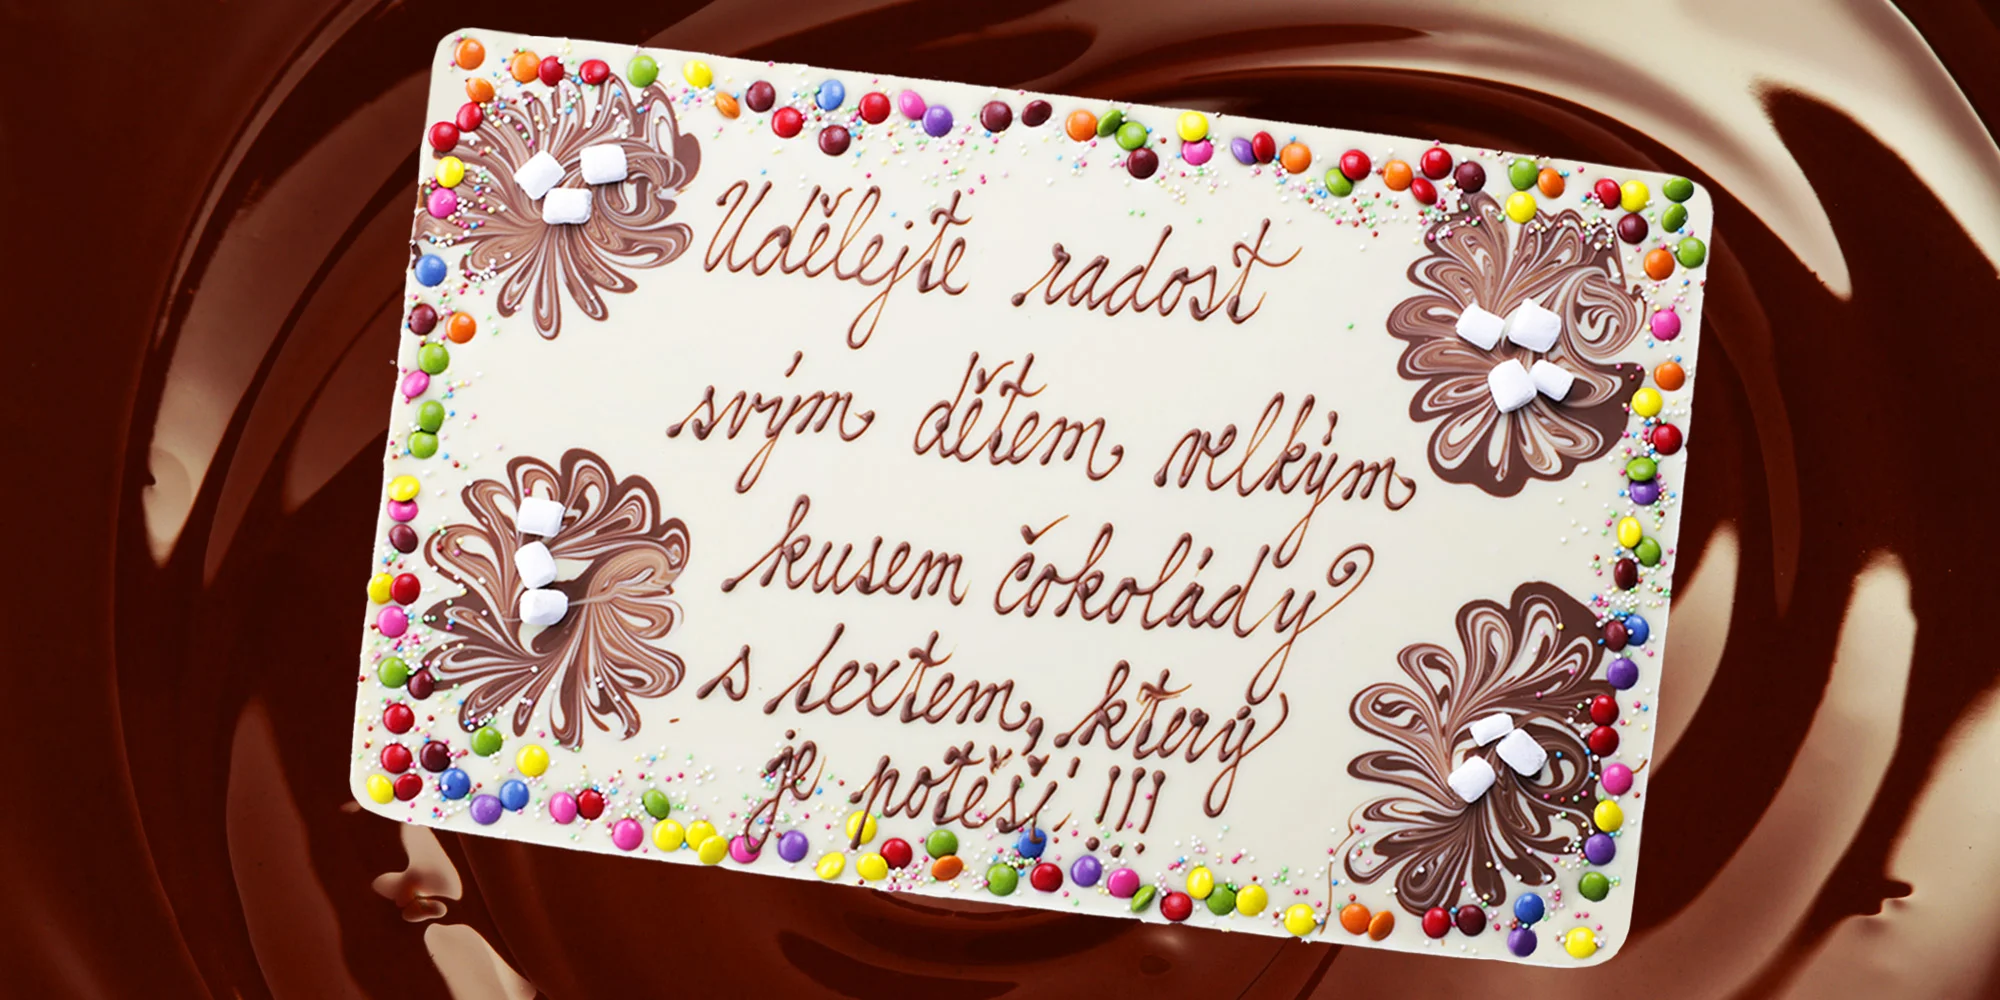 Udělejte radost
svým dětem velkým
kusem čokolády
s textem, který
je potěší!!!